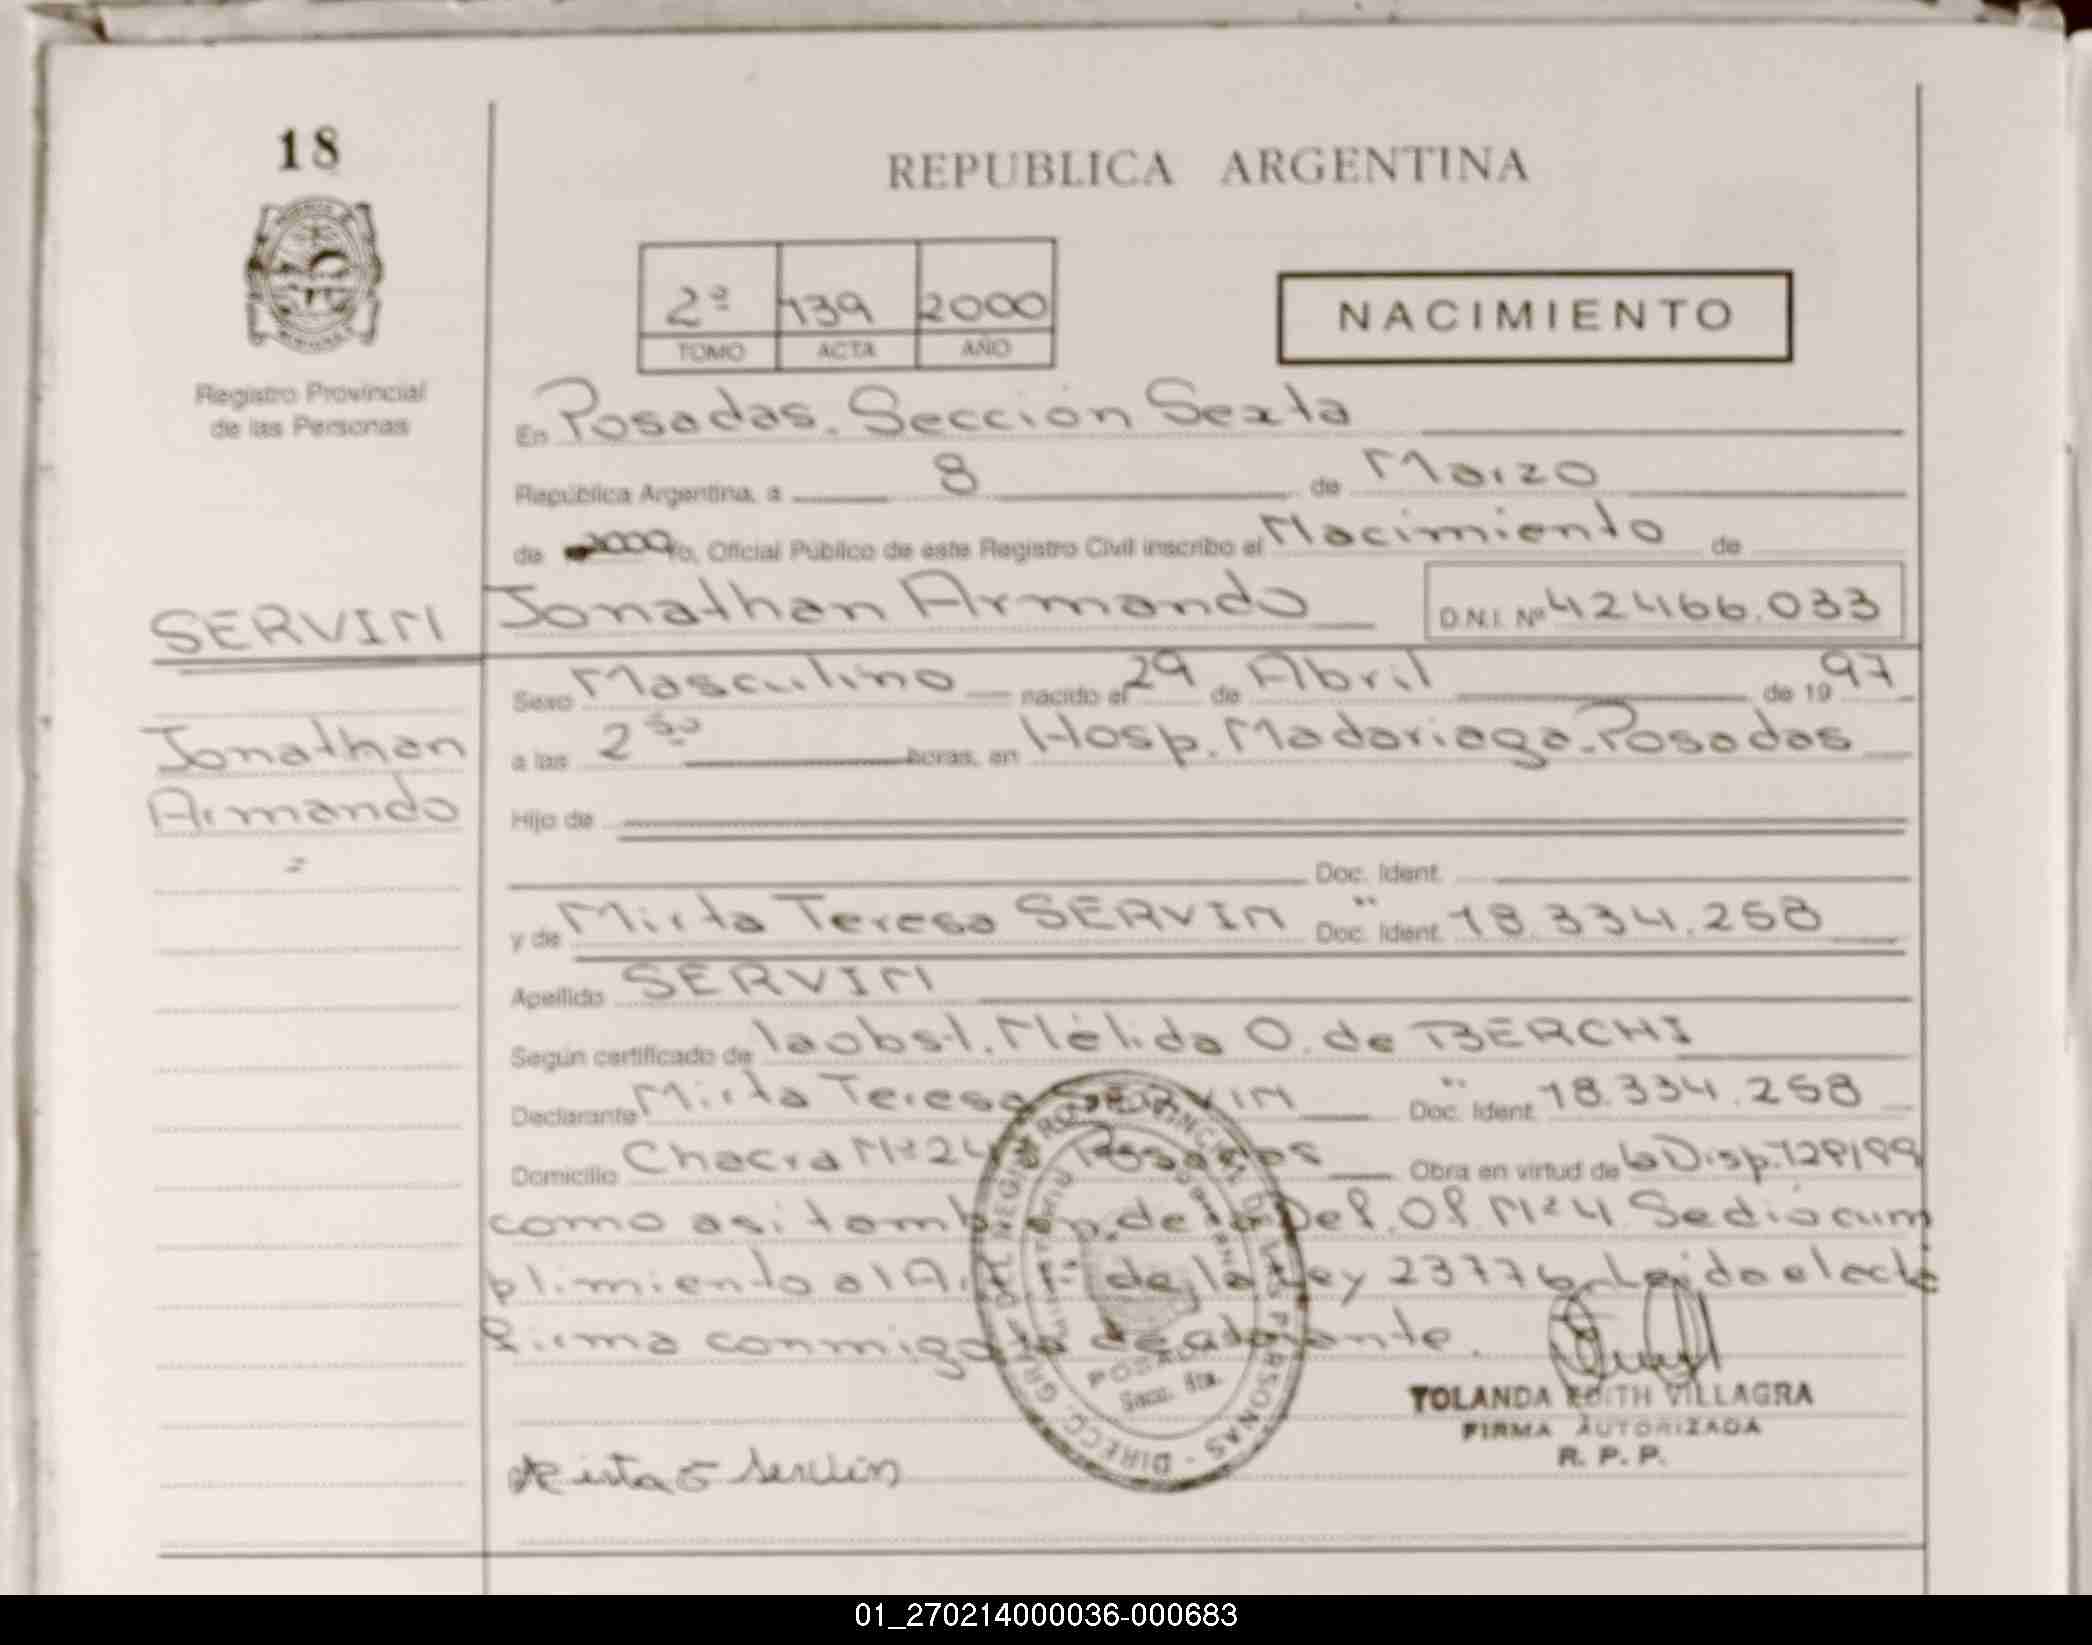 18
REPUBLICA ARGENTINA
2º 139 2000
TOMO ACTA AÑO
NACIMIENTO
Registro Provincial
de las Personas
En Posadas. Sección Sexta
República Argentina, a 8 de Marzo
de 2000 Yo, Oficial Público de este Registro Civil inscribo el Nacimiento de
SERVIN Jonathan Armando D.N.I. Nº 42466.033
Sexo Masculino nacido el 29 de Abril de 19 97
Jonathan
a las 2 30 horas, en Hosp. Madariaga-Posadas
Armando
Hijo de
Doc. Ident.
y de Mirta Teresa SERVIN Doc. Ident. 18.334.258
Apellido SERVIN
Según certificado de la obst. Nélida O. de BERCHI
Declarante Mirta Teresa SERVIN Doc. Ident. 18.334.258
Domicilio Chacra Nº 24 Posadas Obra en virtud de la Disp.
como asi también de la Def. Of. Nº 4 Se dió cum
plimiento al Art. 1º de la Ley 23776 Leida el acta
firma conmigo la declarante.
POSADAS
Secc. 6ta.
YOLANDA EDITH VILLAGRA
FIRMA AUTORIZADA
R. P. P.
Servin
01_270214000036-000683